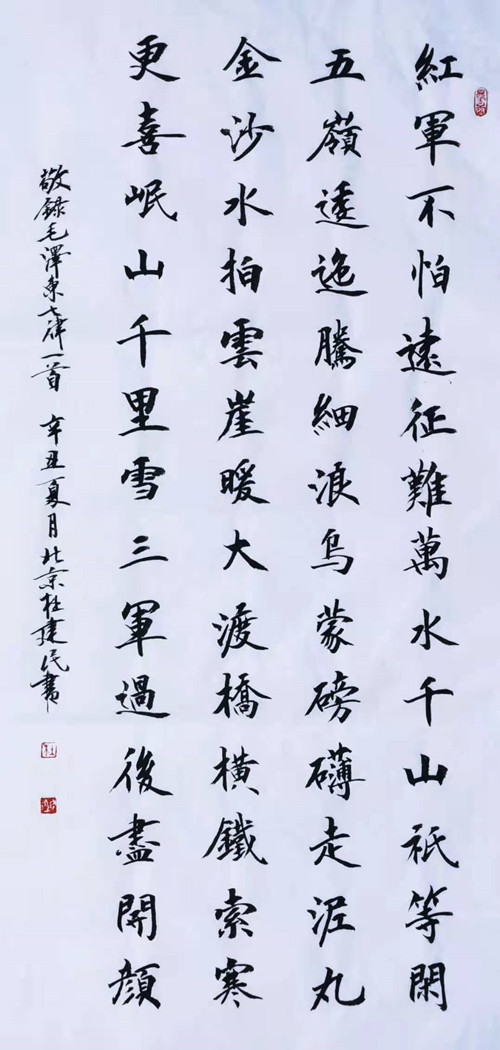 紅軍不怕遠征難萬水千山祇等閑
五嶺逶迤騰細浪烏蒙磅礴走泥丸
金沙水拍雲崖暖大渡橋橫鐵索寒
更喜岷山千里雪三軍過後盡開顏
敬錄毛澤東七律一首 辛丑夏月北京杜建民書